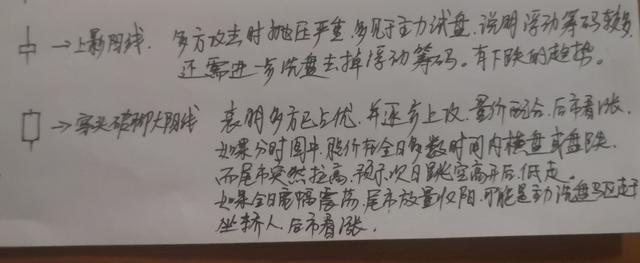 →上影阳线. 多方攻击时抛压严重.多见于主力试盘,说明浮动筹码较多,
还需进一步洗盘去掉浮动筹码。有下跌的趋势。
→穿头破脚大阳线 表明多方已占优,并逐步上攻,量价配合,后市看涨.
如果分时图中,股价在全日多数时间内横盘或盘跌.
而尾市突然拉高,预示次日跳空高开后,低走.
如果全日宽幅震荡,尾市放量收阳,可能是主动洗盘驱赶
坐轿人,后市看涨.